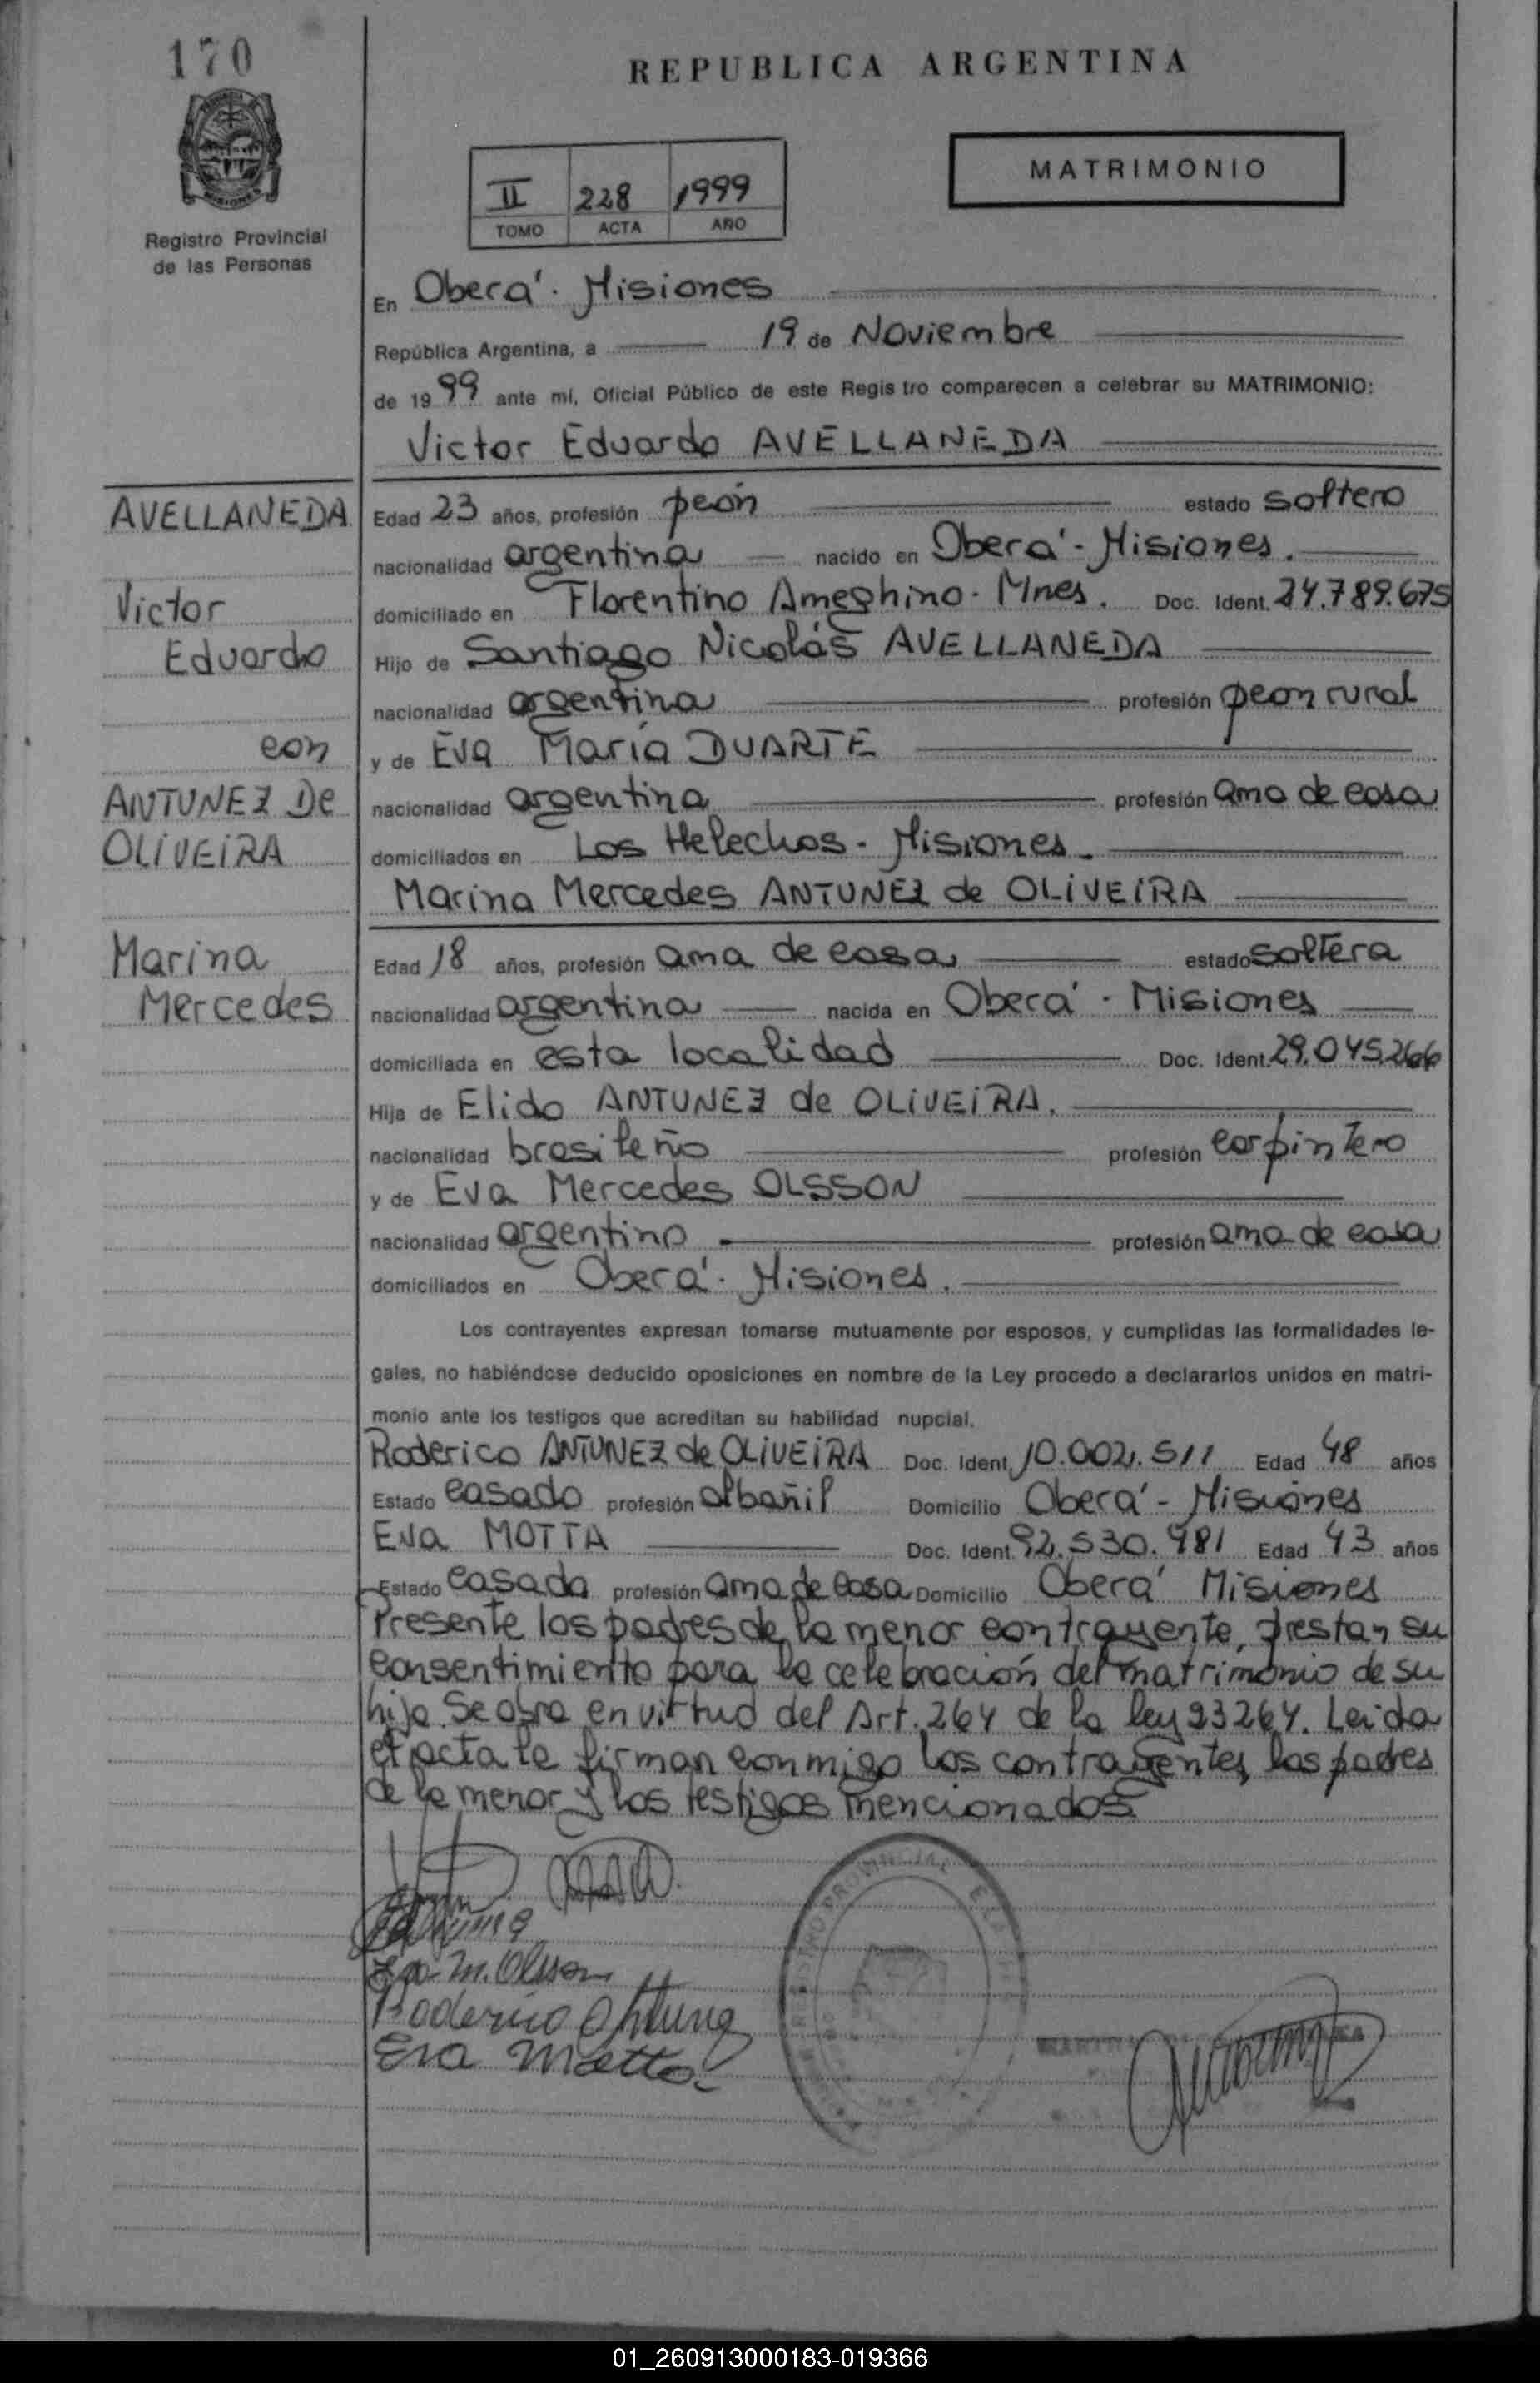 170
REPUBLICA ARGENTINA
MATRIMONIO
II 228 1999
TOMO ACTA AÑO
Registro Provincial
de las Personas
En Oberá. Misiones
República Argentina, a 19 de Noviembre
de 1999 ante mí, Oficial Público de este Registro comparecen a celebrar su MATRIMONIO:
Victor Eduardo AVELLANEDA
AVELLANEDA
Victor
Eduardo
con
ANTUNEZ De
OLIVEIRA
Marina
Mercedes
Edad 23 años, profesión peón estado soltero
nacionalidad argentina nacido en Oberá - Misiones.
domiciliado en Florentino Ameghino - Mnes. Doc. Ident. 24.789.675
Hijo de Santiago Nicolás AVELLANEDA
nacionalidad argentina profesión peon rural
y de Eva María DUARTE
nacionalidad argentina profesión ama de casa
domiciliados en Los Helechos - Misiones.
Marina Mercedes ANTUNEZ de OLIVEIRA
Edad 18 años, profesión ama de casa estado soltera
nacionalidad argentina nacida en Oberá - Misiones
domiciliada en esta localidad Doc. Ident. 29.045.266
Hija de Elido ANTUNEZ de OLIVEIRA.
nacionalidad brasileño profesión carpintero
y de Eva Mercedes OLSSON
nacionalidad argentina profesión ama de casa
domiciliados en Oberá. Misiones.
Los contrayentes expresan tomarse mutuamente por esposos, y cumplidas las formalidades le-
gales, no habiéndose deducido oposiciones en nombre de la Ley procedo a declararlos unidos en matri-
monio ante los testigos que acreditan su habilidad nupcial.
Roderico ANTUNEZ de OLIVEIRA Doc. Ident. 10.002.511 Edad 48 años
Estado casado profesión albañil Domicilio Oberá - Misiones
Eva MOTTA Doc. Ident. 92.530.981 Edad 43 años
Estado casada profesión ama de casa Domicilio Oberá Misiones
Presente los padres de la menor contrayente, prestan su
consentimiento para la celebración del matrimonio de su
hija. Se obra en virtud del Art. 264 de la ley 23264. Leida
el acta la firman conmigo los contrayentes, los padres
de la menor y los testigos mencionados
Eva M. Olsson
Roderico Antunez
Eva Motta
01_260913000183-019366